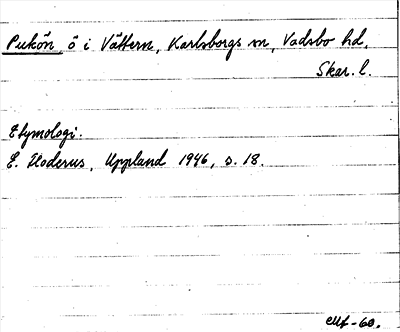 Pukön ö i Vättern, Karlsborgs sn, Vadsbo hd,
Skar. l.
Etymologi.
E. Hoderus, Uppland 1946, s. 18.
-60.